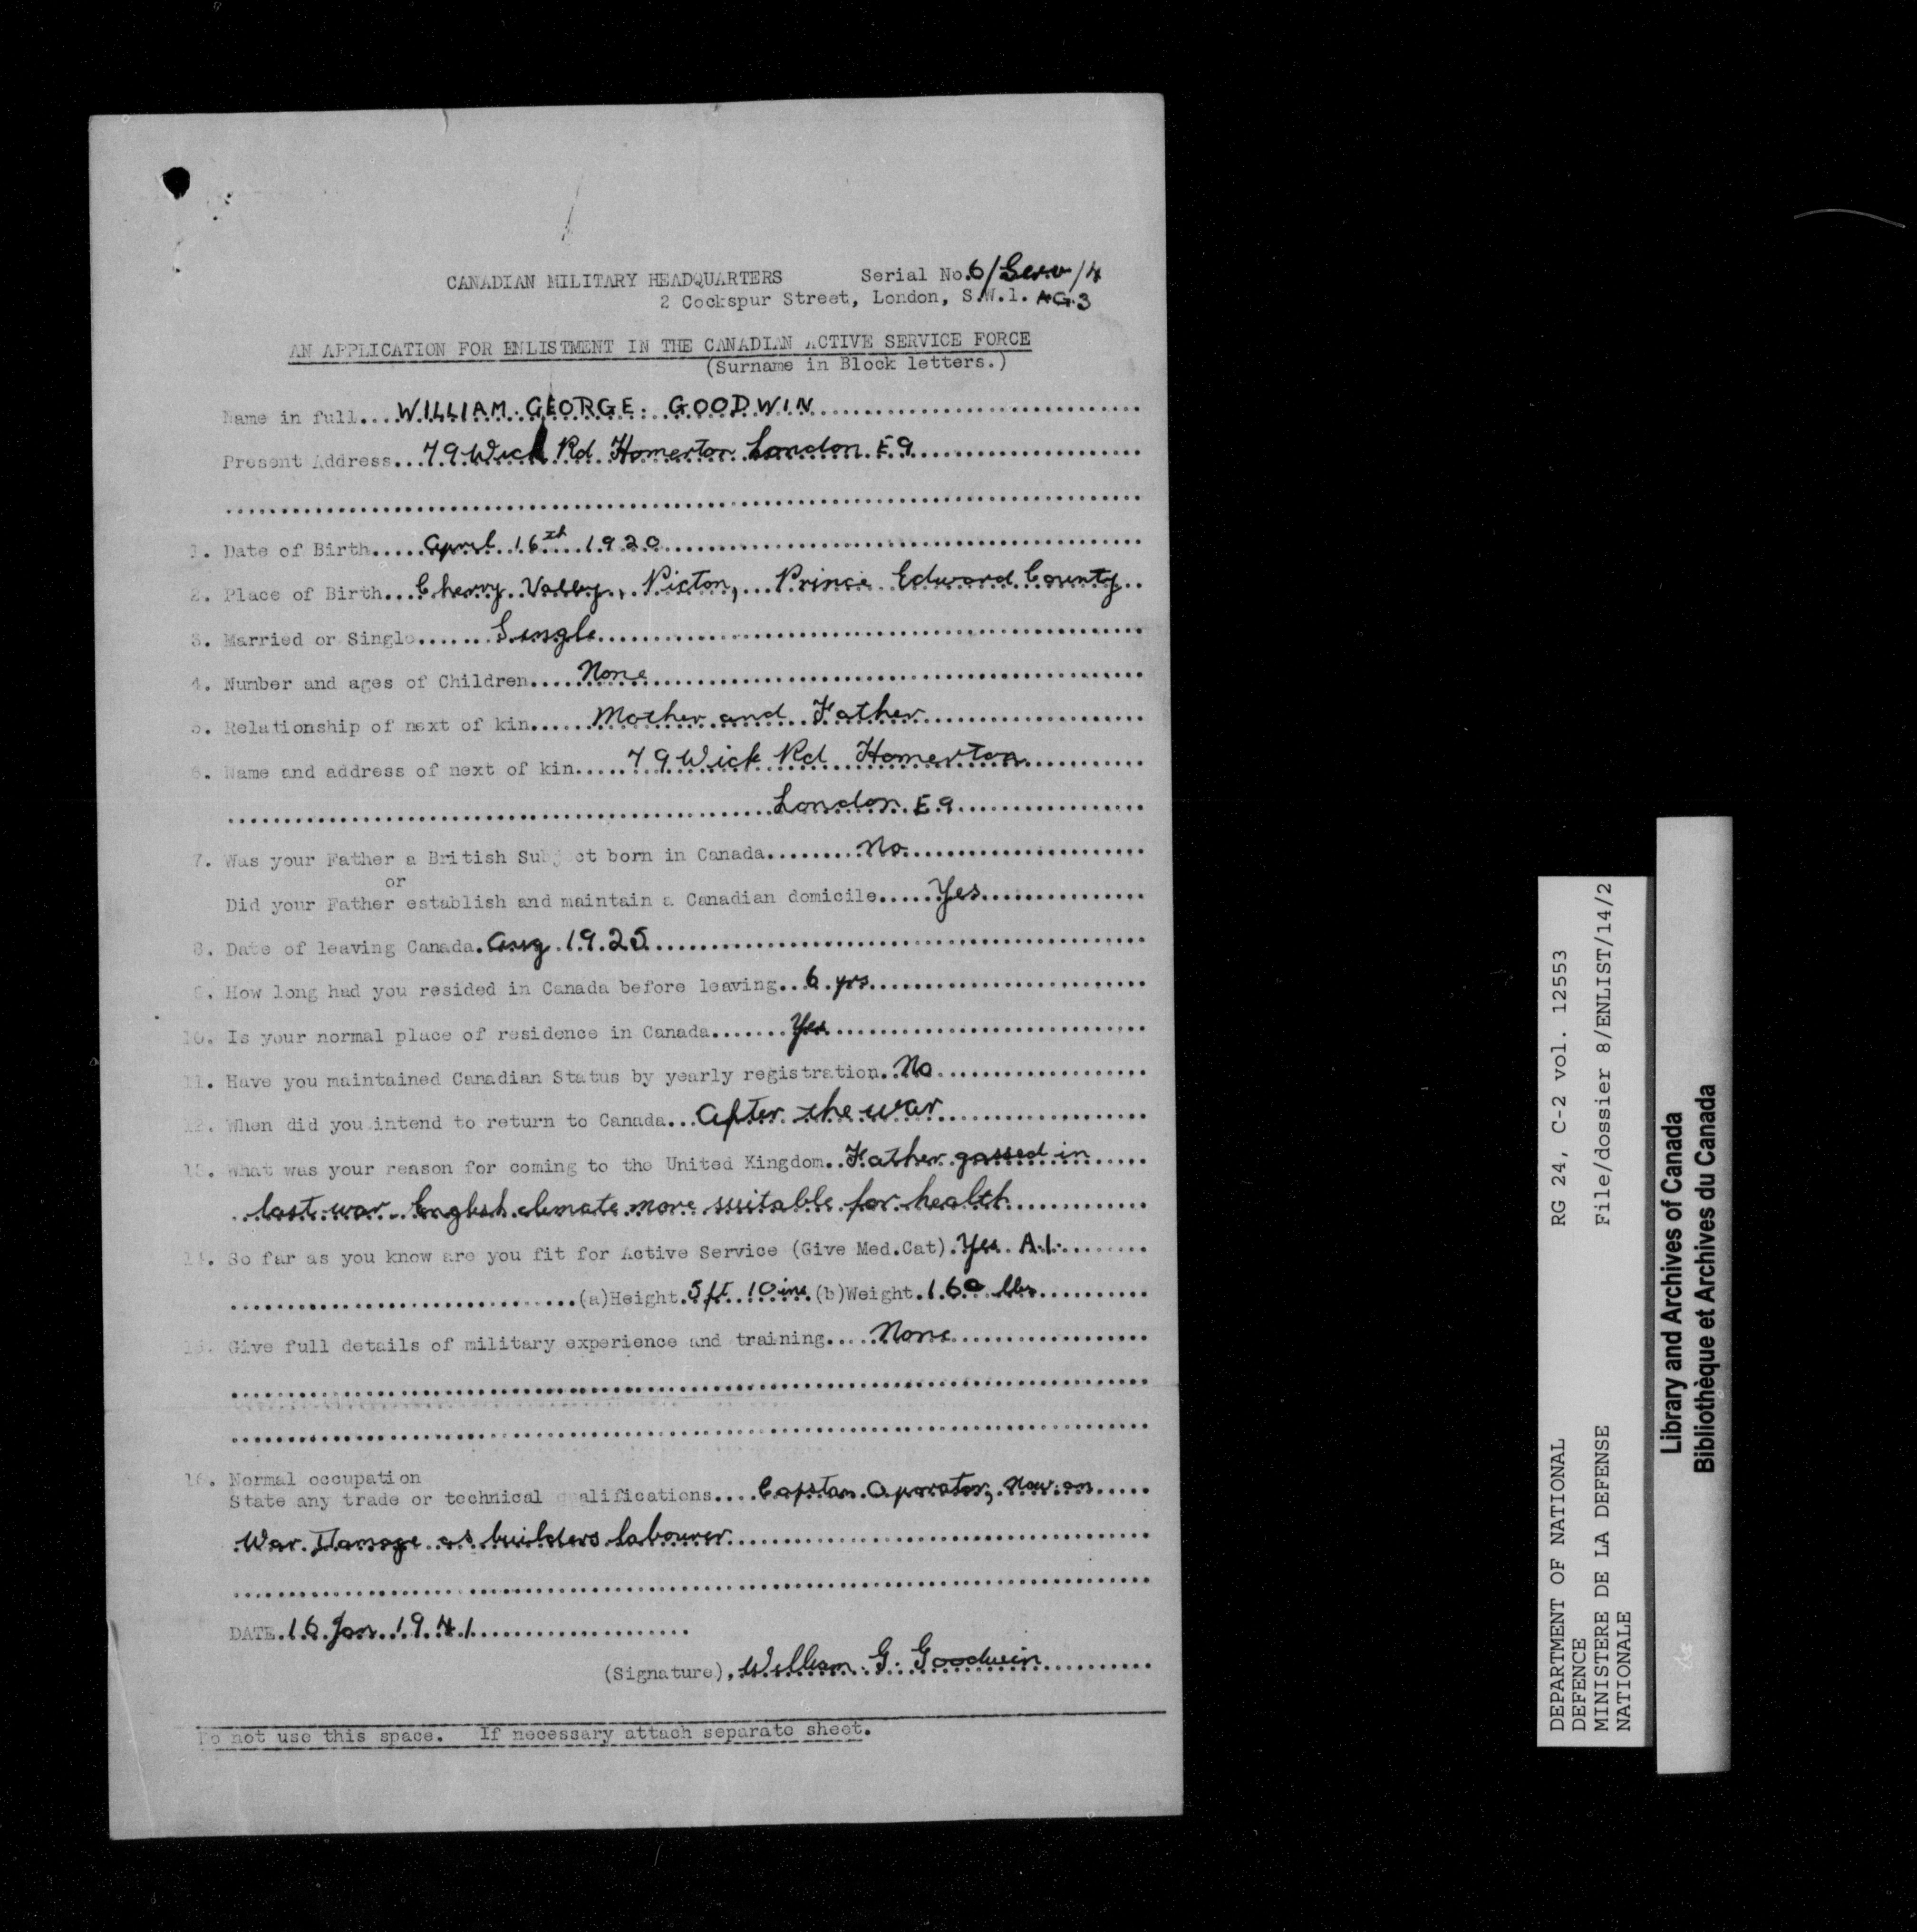 CANADIAN MILITARY HEADQUARTERS Serial No. 6/Serv/4
2 Cockspur Street, London, S.W.1. AG.3
AN APPLICATION FOR ENLISTMENT IN THE CANADIAN ACTIVE SERVICE FORCE
(Surname in Block letters.)
Name in full....WILLIAM. GEORGE. GOODWIN
Present Address...79 Wick Rd Homerton London E9
1. Date of Birth.....April 16th 1920
2. Place of Birth...Cherry Valley, Picton, Prince Edward County
3. Married or Single.......Single
4. Number and ages of Children.....None
5. Relationship of next of kin.....Mother and Father
6. Name and address of next of kin.....79 Wick Rd Homerton
London E9
7. Was your Father a British Subject born in Canada........No
or
Did your Father establish and maintain a Canadian domicile.....Yes
8. Date of leaving Canada. Aug 1925
9. How long had you resided in Canada before leaving...6 yrs
10. Is your normal place of residence in Canada.......Yes
11. Have you maintained Canadian Status by yearly registration. No
12. When did you intend to return to Canada...After the war
13. What was your reason for coming to the United Kingdom..Father gassed in
last war English climate more suitable for health
14. So far as you know are you fit for Active Service (Give Med.Cat). Yes A.1.
(a)Height. 5 ft 10 ins (b)Weight. 160 lbs
15. Give full details of military experience and training.....None
16. Normal occupation
State any trade or technical qualifications....Capstan Oparator, Now on
War Damage as builders labourer
DATE. 16 Jan 1941
(Signature). William. G. Goodwin
Do not use this space. If necessary attach separate sheet.
DEPARTMENT OF NATIONAL RG 24, C-2 vol. 12553
DEFENCE
MINISTERE DE LA DEFENSE File/dossier 8/ENLIST/14/2
NATIONALE
Library and Archives of Canada
Bibliothèque et Archives du Canada